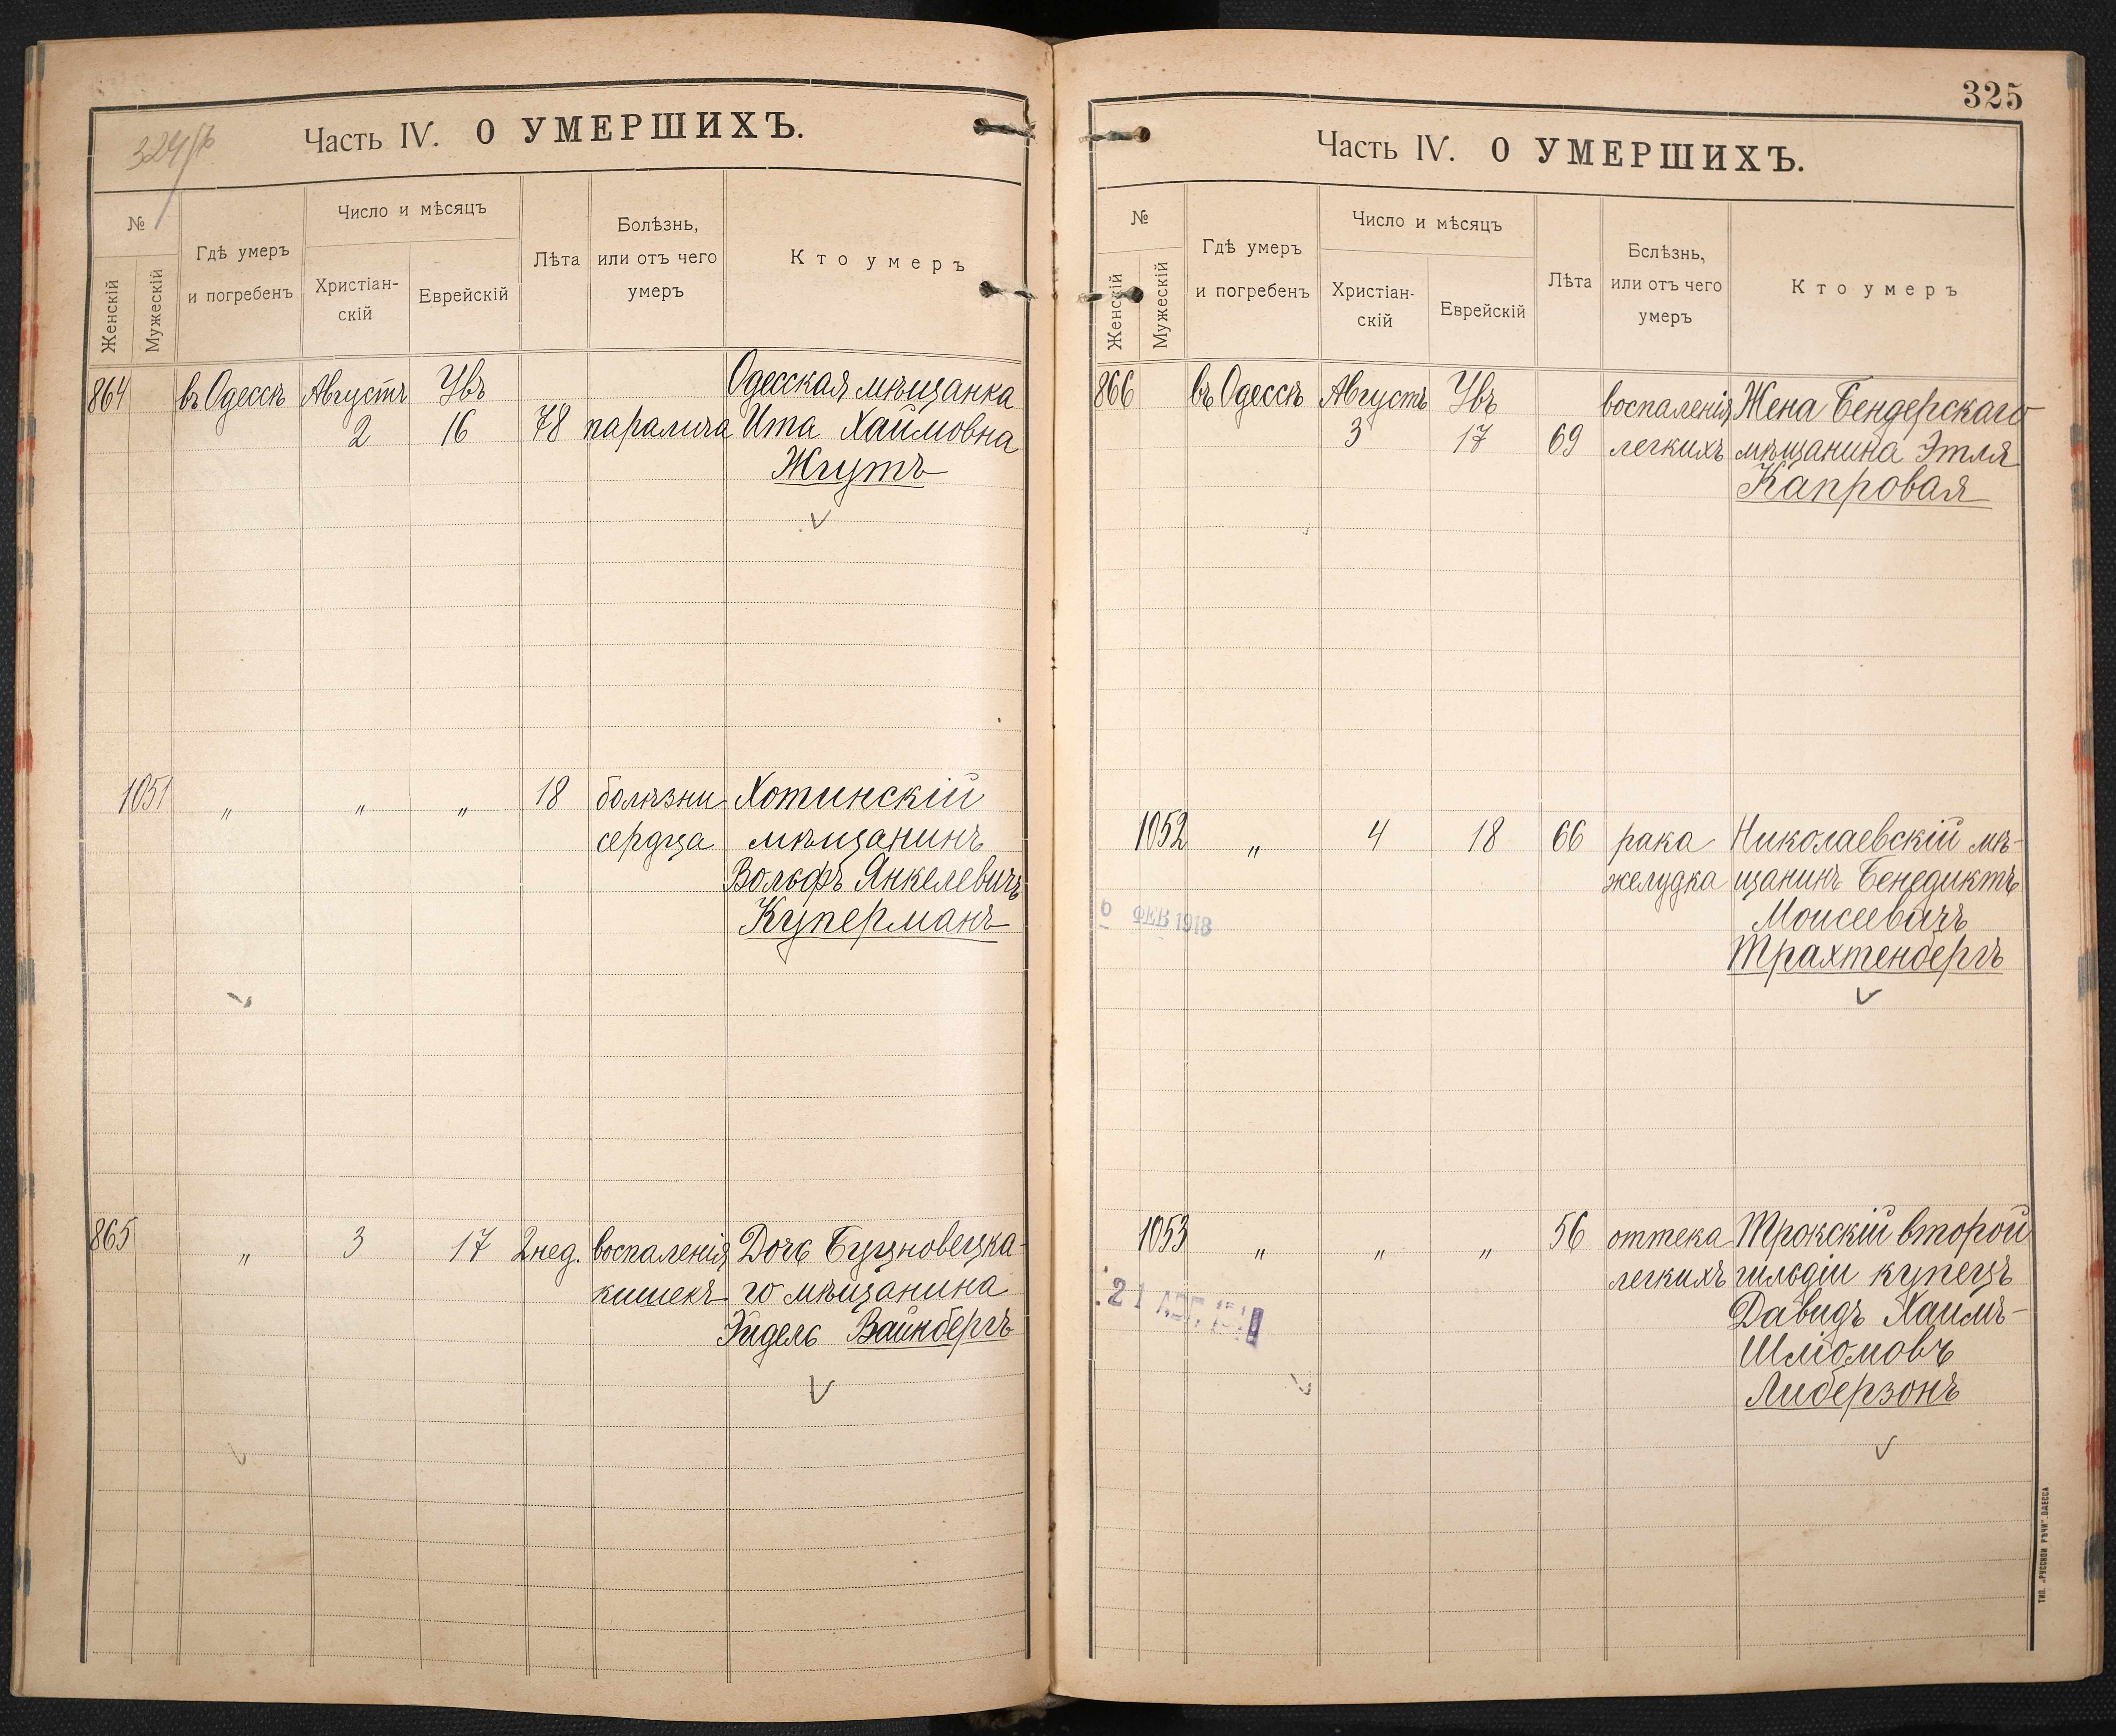 324/б
Часть IV. О УМЕРШИХЪ.
№
Женскій
Мужескій
Гдѣ умеръ
и погребенъ
Число и мѣсяцъ
Христіан-
скій
Еврейскій
Лѣта
Болѣзнь,
или отъ чего
умеръ
Кто умеръ
864 въ Одессѣ Августъ Увъ Одесская мѣщанка
2 16 78 паралича Ита Хаимовна
Жгутъ
1051 " " " 18 болѣзни Хотинскій
сердца мѣщанинъ
Вольфъ Янкелевичъ
Куперманъ
865 " 3 17 2 нед. воспаленія Дочь
кишекъ го мѣщанина
Эйдель Вайнбергъ
325
Часть IV. О УМЕРШИХЪ.
№
Женскій
Мужескій
Гдѣ умеръ
и погребенъ
Число и мѣсяцъ
Христіан-
скій
Еврейскій
Лѣта
Бслѣзнь,
или отъ чего
умеръ
Кто умеръ
866 въ Одессѣ Августъ Увъ воспаленія Жена Бендерскаго
3 17 69 легкихъ мѣщанина Этля
Капровая
1052 " 4 18 66 рака Николаевскій мѣ-
желудка щанинъ Бенедиктъ
Моисеевичъ
Трахтенбергъ
6 ФЕВ 1918
1053 " " " 56 оттека Трокскій второй
легкихъ гильдіи купецъ
Давидъ Хаимъ-
Шліомовъ
Либерзонъ
21
ТИП. „РУССКОЙ РѢЧИ" ОДЕССА